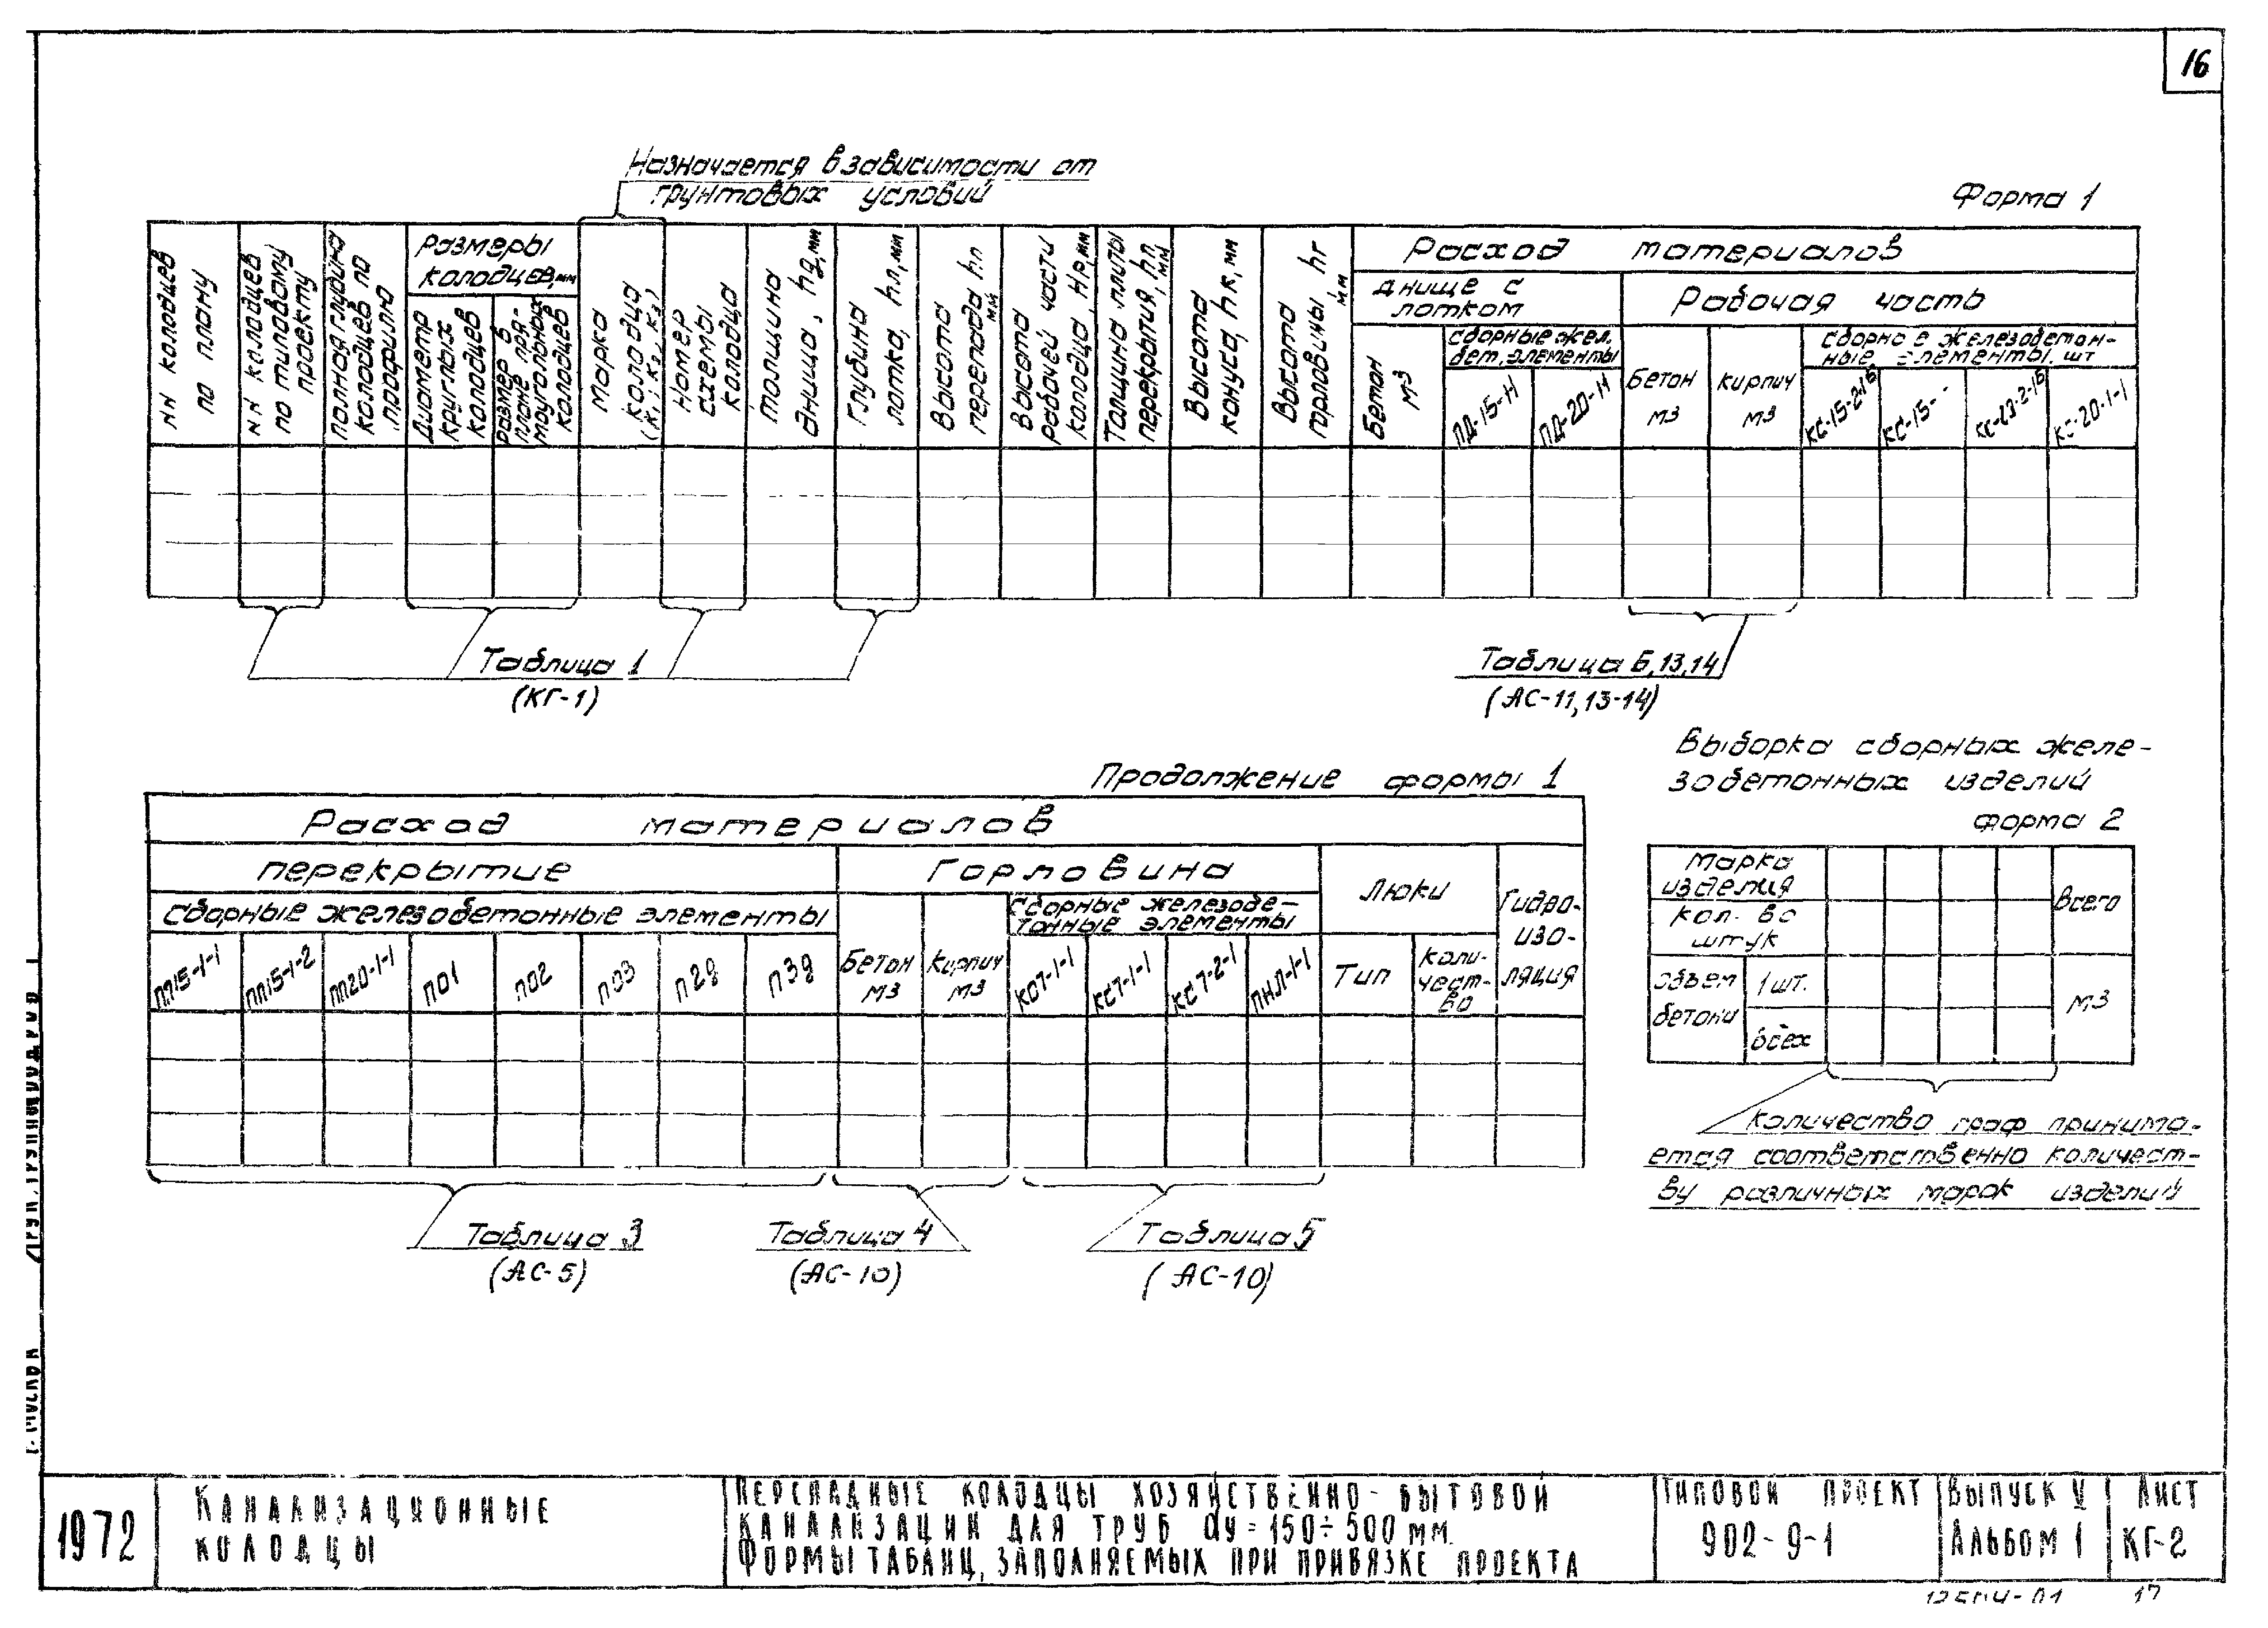 16
Назначается в зависимости от
грунтовых условий
Форма 1
NN колодцев
по плану
NN колодцев
по типовому
проекту
полная глубина
колодцев по
профилю
Размеры
колодцев, мм
Диаметр
круглых
колодцев
Размер в
плане пря-
моугольных
колодцев
Марка
колодца
(К1; К2, К3)
Номер
схемы
колодца
Толщина
днища, hд, мм
Глубина
лотка, hл, мм
Высота
перепада hп
мм
Высота
рабочей части
колодца, Hр, мм
Толщина плиты
перекрытия, hп
мм
Высота
конуса, hк, мм
Высота
горловины, hг
мм
Расход материалов
днище с
лотком
Рабочая часть
Бетон
м3
сборные жел.
бет. элементы
ПД-15-Н
ПД-20-Н
Бетон
м3
кирпич
м3
сборные железобетон-
ные элементы, шт
КС-15-2-1б
КС-15-
КС-20-2-1б
КС-20-1-1
Таблица 1
(КГ-1)
Таблица 6,13,14
(АС-11,13-14)
Продолжение формы 1
Расход материалов
перекрытие
Горловина
Люки
Гидро-
изо-
ляция
сборные железобетонные элементы
сборные железобе-
тонные элементы
ПП15-1-1
ПП15-1-2
ПП20-1-1
ПО1
ПО2
ПО3
П2д
П3д
Бетон
м3
Кирпич
м3
КО7-1-1
КС7-1-1
КС7-2-1
ПНЛ-1-1
Тип
Коли-
чест-
во
Таблица 3
(АС-5)
Таблица 4
(АС-10)
Таблица 5
(АС-10)
Выборка сборных желе-
зобетонных изделий
Форма 2
Марка
изделия
Кол-во
штук
Всего
объем
бетона
1 шт.
всех
м3
Количество граф принима-
ется соответственно количест-
ву различных марок изделий
1972
Канализационные
колодцы
Перепадные колодцы хозяйственно-бытовой
канализации для труб dу=150÷500 мм.
Формы таблиц, заполняемых при привязке проекта
Типовой проект
902-9-1
Выпуск V
Альбом 1
Лист
КГ-2
17